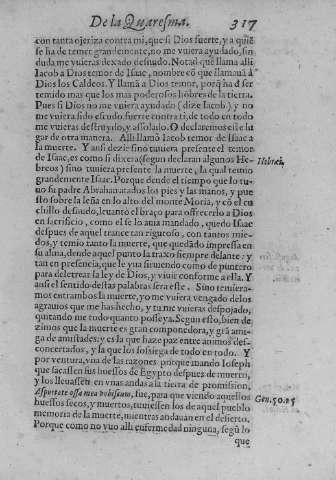 De la Quaresma. 317
con tanta ojeriza contra mi, que si Dios fuerte, y a quiẽ
se ha de temer grandemente, no me vuiera ayudado, sin
duda me vuieras dexado desnudo. Notad que llama alli
Iacob a Dios temor de Isaac, nombre cõ que llamauã a
Dios los Caldeos. Y llamã a Dios temor, porq̃ ha de ser
temido mas que los mas poderosos hõbres de la tierra.
Pues si Dios no me vuiera ayudado (dize Iacob) y no
me vuiera sido escudo fuerte contra ti, de todo en todo
me vuieras destruydo, y assolado. O declaremos este lu
gar de otra manera. Alli llamò Iacob temor de Isaac a
la muerte. Y ansi dezir sino tuuiera presente el temor
de Isaac, es como si dixera (segun declaran algunos He-
breos) sino tuuiera presente la muerte, la qual temio
grandemente Isaac. Porque desde el tiempo que lo tu-
uo su padre Abrahan atados los pies y las manos, y pue
sto sobre la leña en lo alto del monte Moria, y cõ el cu
chillo desnudo, leuantò el braço para offrecerlo a Dios
en sacrificio, como el se lo auia mandado, quedo Isaac
despues de aquel trance tan riguroso, con tantos mie-
dos, y temio tanto la muerte, que quedãdo impressa en
su alma, dende aquel punto la traxo siempre delante: y
tan en presencia, que le yua siruiendo como de puntero
para deletrear la ley de Dios, y viuir conforme a ella. Y
ansi el sentido destas palabras sera este. Sino tenniera-
mos entrambos la muerte, yo me vuiera vengado de los
agrauios que me has hecho, y tu me vuieras despojado,
quitando me todo quanto posseya. Segun esto, bien de
zimos que la muerte es gran componedora, y grã ami-
ga de amistades: y es la que haze paz entre animos des-
concertados, y la que los sossiega de todo en todo. Y
por ventura, vna de las razones porque mando Ioseph
que sacassen sus huessos de Egypto despues de muerto,
y los lleuassen en vnas andas a la tierra de promission,
Asportate ossa mea vobiscum, fue, para que viendo aquellos
huessos secos, y muertos, tuuiessen los de aquel pueblo
memoria de la muerte, mientras andauan en el desierto.
Porque como no vuo alli enfermedad ninguna, segũ lo
que
Hebræi.
Gen. 50. 25